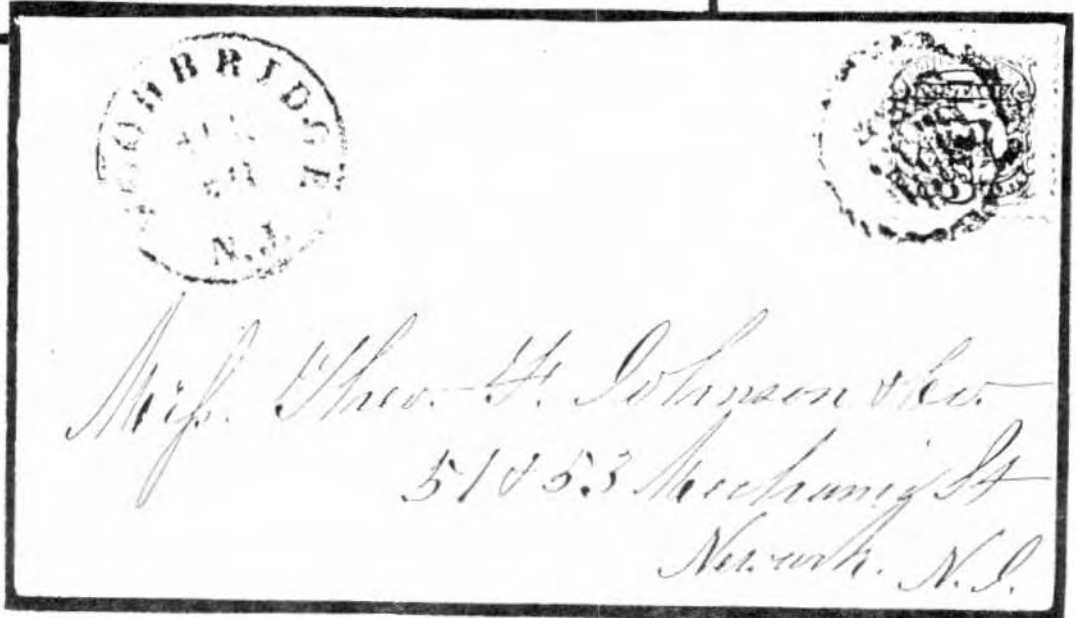 WOODBRIDGE
N.J.
POSTAGE
Messrs. Theo. F. Johnson & Co.
51 & 53 Mechanic St
Newark. N.J.